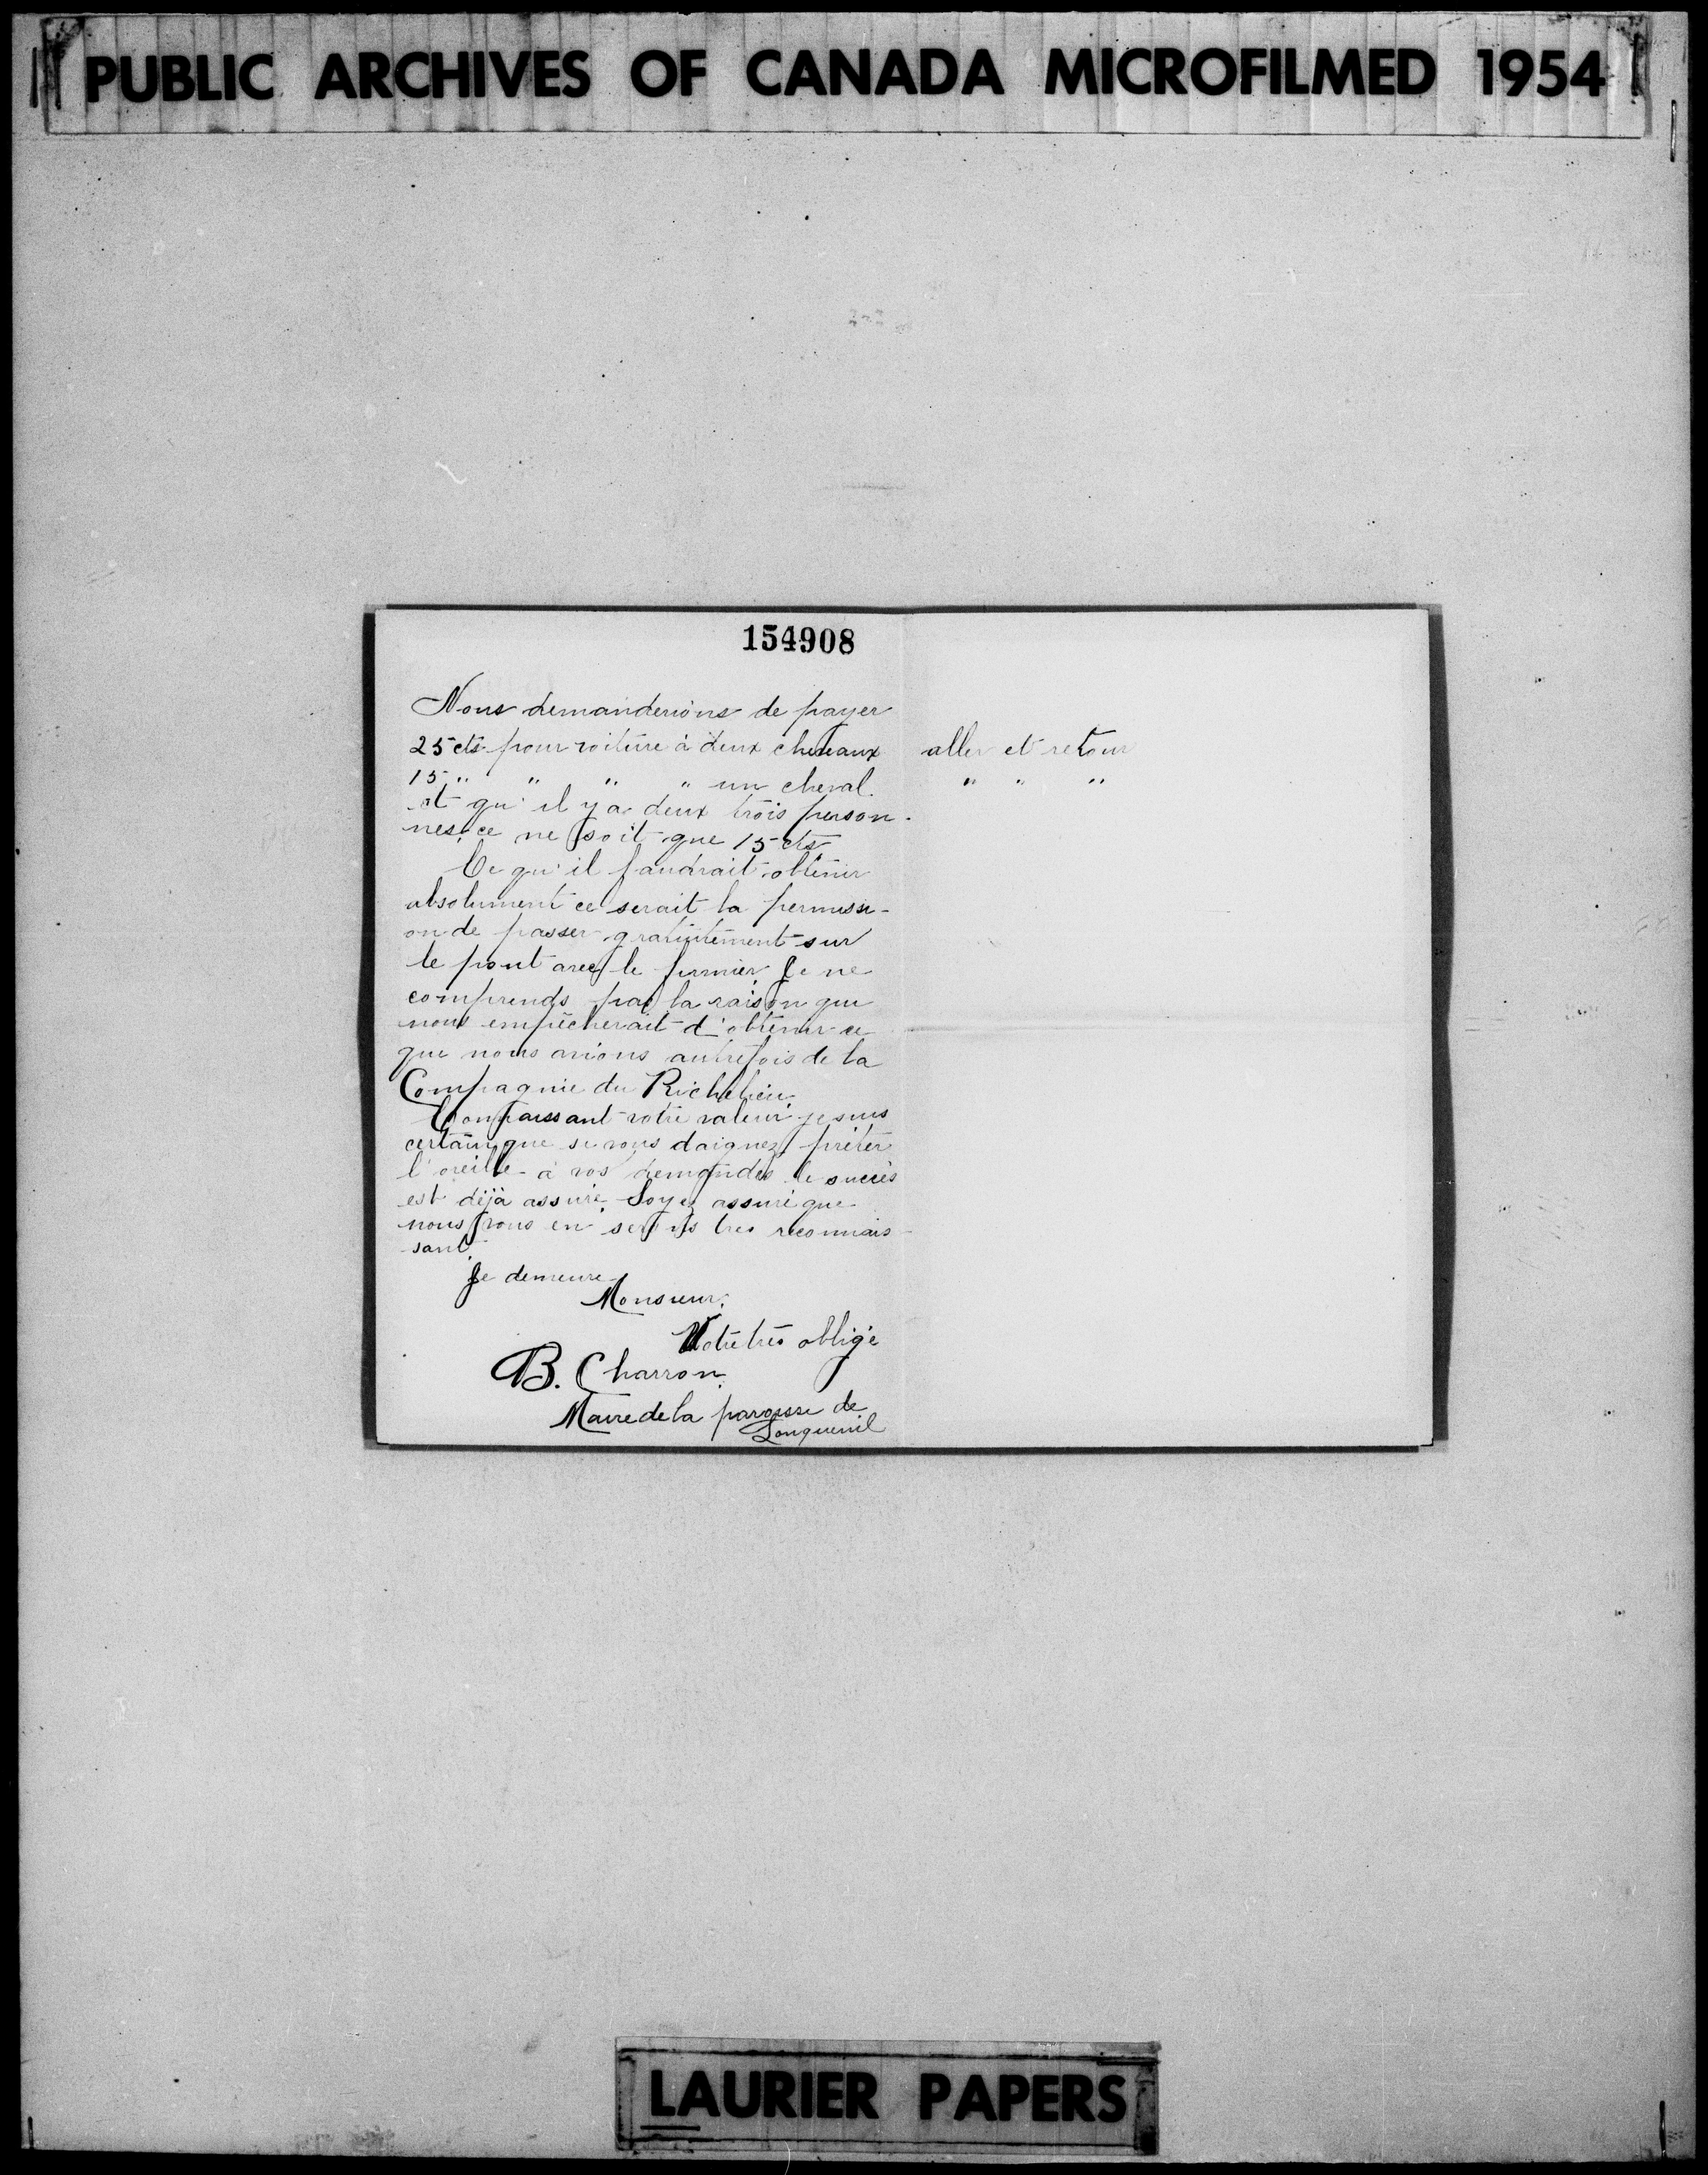 PUBLIC ARCHIVES OF CANADA MICROFILMED 1954
154908
Nous demanderions de payer
25 cts pour voiture à deux chevaux aller et retour
15 " " " " un cheval. " " "
et qu'il y a deux trois person-
nes, ce ne soit que 15 cts
Ce qu'il faudrait obtenir
absolument ce serait la permissi-
on de passer gratuitement sur
le pont avec le fumier. Je ne
comprends pas la raison qui
nous empêcherait d'obtenir ce
que nous avions autrefois de la
Compagnie du Richelieu.
Connaissant votre valeur je suis
certain que si vous daignez prêter
l'oreille à nos demandes le succès
est déjà assuré. Soyez assuré que
nous vous en serons très reconnais-
sant.
Je demeure
Monsieur,
Votre très obligé
B. Charron.
Maire de la paroisse de
Longueuil
LAURIER PAPERS